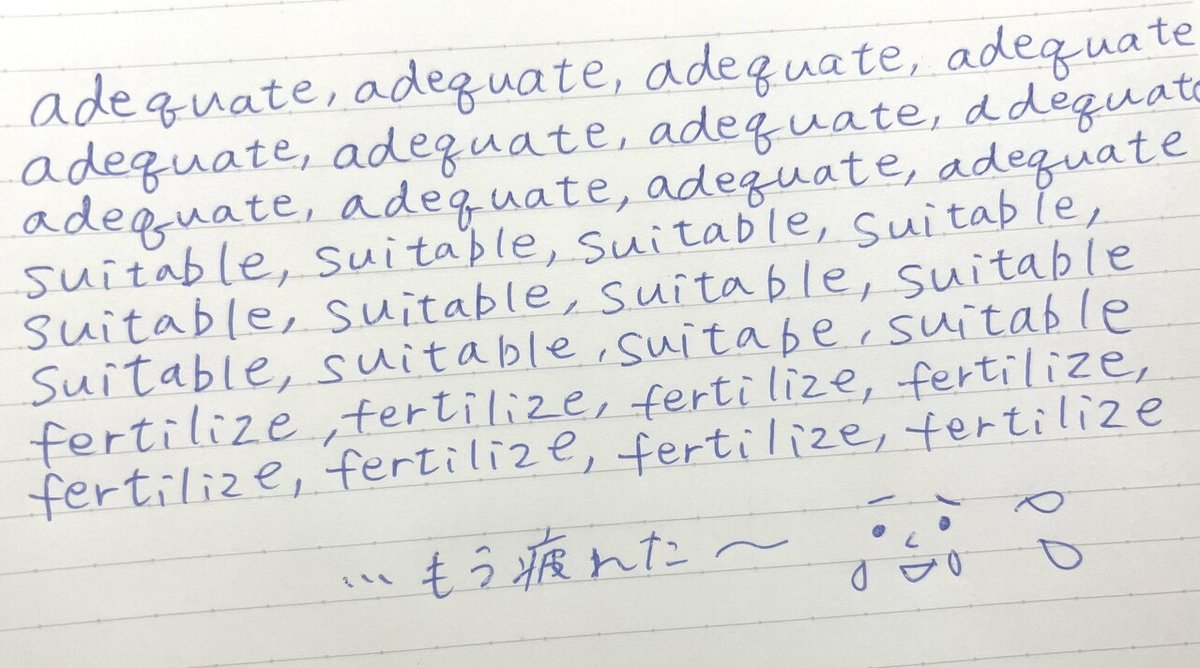 adequate, adequate, adequate, adequate
adequate, adequate, adequate, adequate
adequate, adequate, adequate, adequate
suitable, suitable, suitable, suitable,
suitable, suitable, suitable, suitable
suitable, suitable, suitabe, suitable
fertilize, fertilize, fertilize, fertilize,
fertilize, fertilize, fertilize, fertilize
…もう疲れた〜